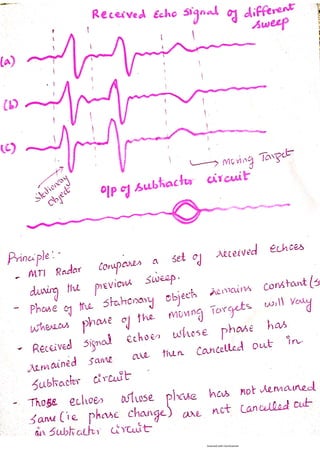 Received Echo Signal of different
sweep
(a)
(b)
(c)
Moving Target
Stationary
Object
O/P of Subtractor circuit
Principle:-
- MTI Radar compares a set of received Echoes
during the previous sweep.
- Phase of the Stationary objects remains constant(s
whereas phase of the moving Targets will vary
- Received signal Echoes whose phase has
remained same are then cancelled out in
Subtractor circuit
- Those echoes whose phase has not remained
same (ie phase change) are not cancelled out
in Subtractor circuit
Scanned with CamScanner